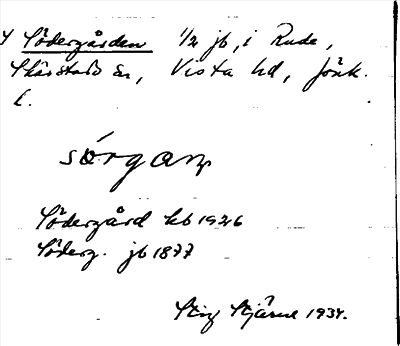 Södergården 1/2 jb, i Rude,
Skärstad sn, Vista hd, Jönk.
l.
sörgaɲ
Södergård kb 1926
Söderg. jb 1877
Stig Stjärne 1934.